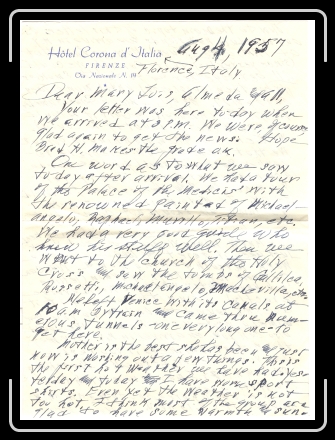 Hotel Corona d'Italia Aug 4, 1957
FIRENZE
Via Nazionale N. 14
Florence, Italy
Dear Mary Lois, Almeda & all,
Your letter was here today when
we arrived at 3 P.M. We were, of course,
glad again to get the news. Hope
Fred H. makes the grade ok.
One word as to what we saw
today after arrival. We had a tour
of the Palace of the Medicis with
the renowned paintings of Michael-
angelo, Raphael, Murillo, Titian, etc.
We had a very good guide who
knew his stuff well. Then we
went to the Church of the Holy
Cross & saw the tombs of Galileo,
Rossetti, Michael Angelo, Machevilla, etc.
We left Venice with its canals at
10 AM by train & came thru num-
erous tunnels one very long one to
get here.
Mother is the best shots has been & just
now is washing out a few things. This is
the first hot weather we have had. Yes-
terday & today I have worn sport
shirts. Even yet the weather is not
too hot. I think most of the group are
glad to have some warmth & sun-